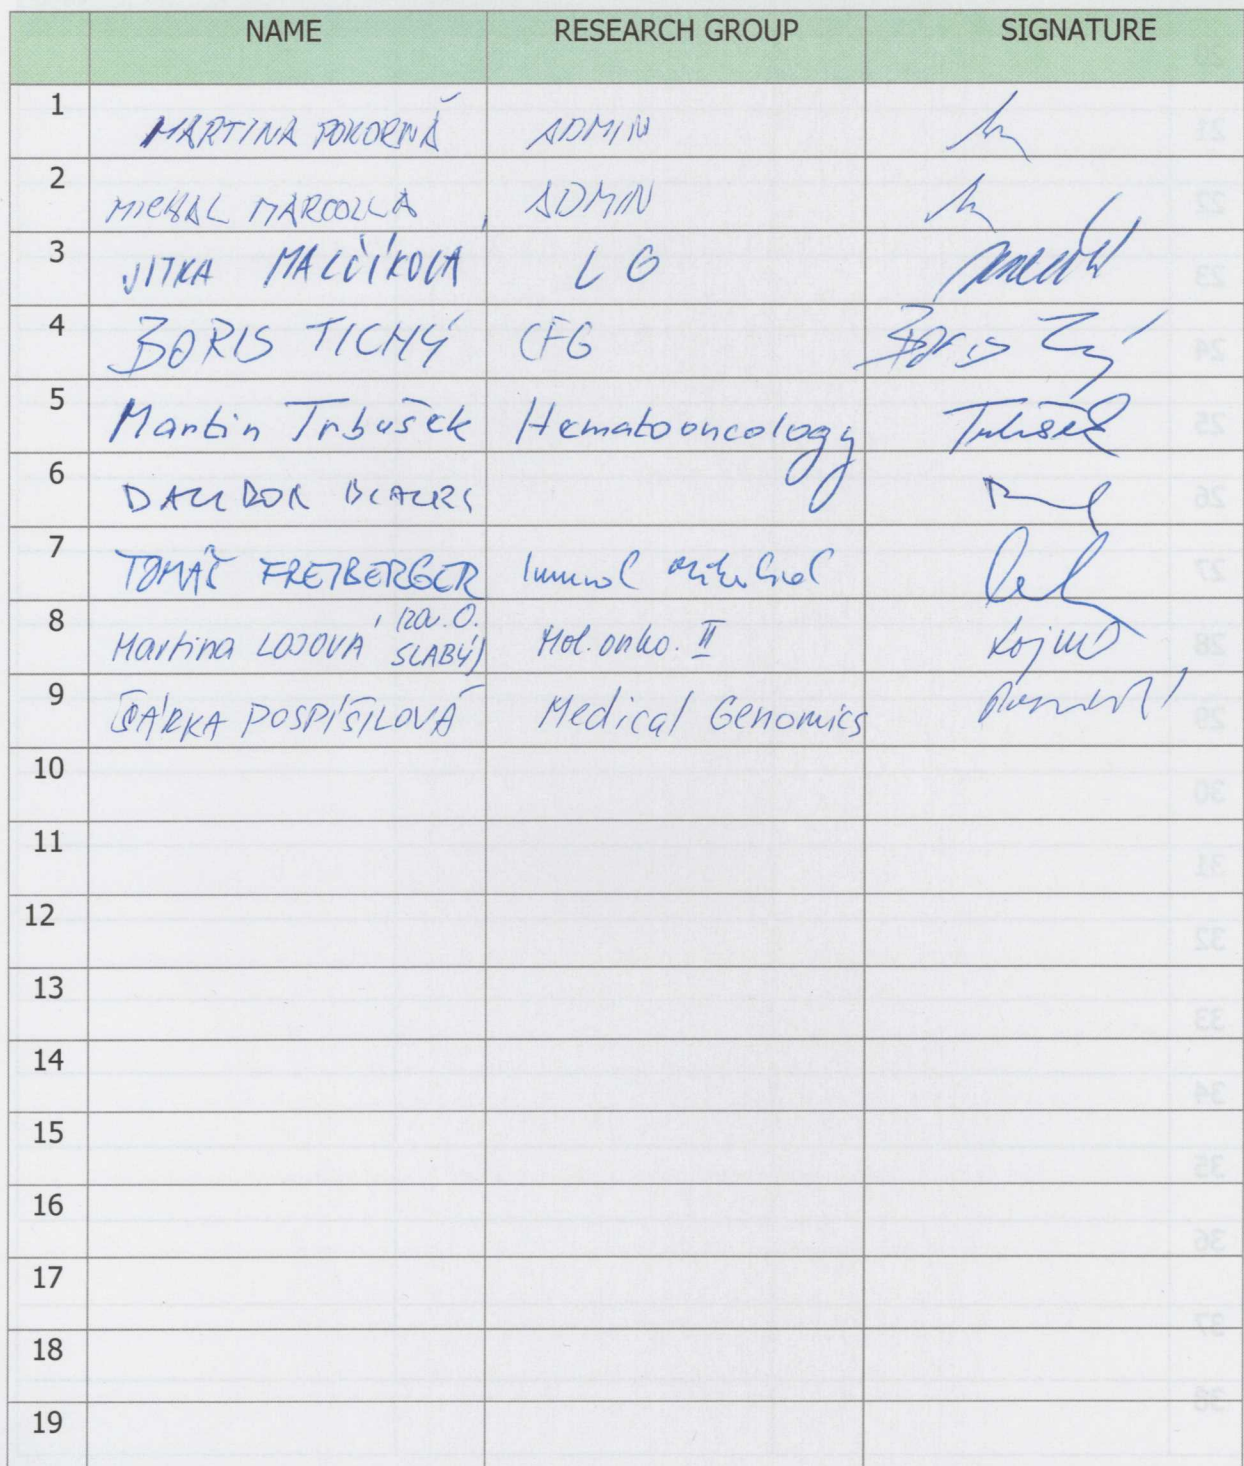 NAME RESEARCH GROUP SIGNATURE
1 MARTINA POKORNÁ ADMIN
2 MICHAL MARCOLLA ADMIN
3 JITKA MALČÍKOVÁ LG
4 BORIS TICHÝ CFG Boris
5 Martin Trbušek Hematooncology Trbušek
6 DALIBOR
7 TOMÁŠ FREIBERGER Immunol
8 Martina LOJOVÁ / za O. SLABÝ) Mol. onko. II
9 ŠÁRKA POSPÍŠILOVÁ Medical Genomics
10
11
12
13
14
15
16
17
18
19